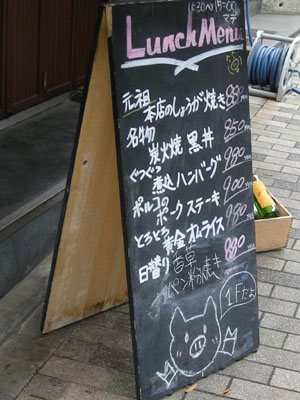 11:30〜15:00
マデ
Lunch Menu
元祖 本店のしょうが焼き 880
名物 炭火焼 黒丼 850
ぐつぐつ 煮込ハンバーグ 980
ポルコの ポークステーキ 900
とろとろ 黄金オムライス 980
日替り 香草パン粉焼き 880
1Fだよ